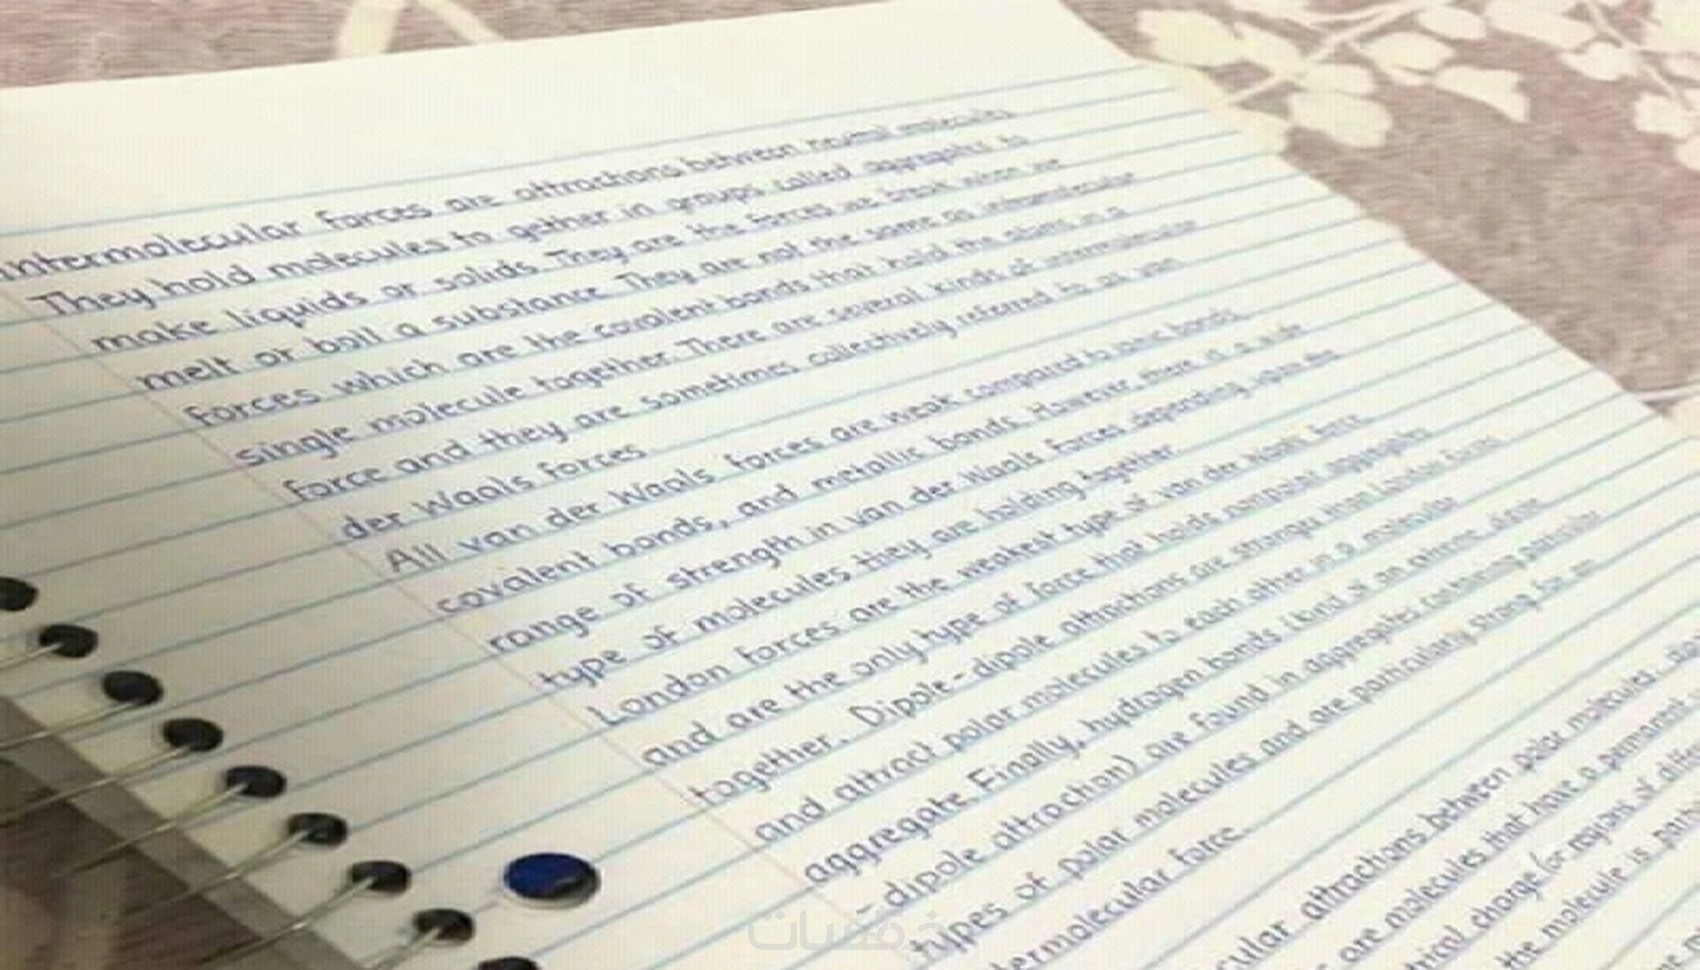 intermolecular forces are attractions between neutral molecules
They hold molecules to gether in groups called aggregates to
make liquids or solids. They are the forces we break when we
melt or boil a substance. They are not the same as
forces which are the covalent bonds that hold the atoms in a
single molecule together. There are several kinds of intermolecular
force and they are sometimes collectively referred to as van
der Waals forces
All van der Waals forces are weak compared to ionic bonds,
covalent bonds, and metallic bonds. However there is a wide
range of strength in van der Waals forces depending upon the
type of molecules they are holding together.
London forces are the weakest type of van der Waals force
and are the only type of force that holds nonpolar aggregates
together. Dipole-dipole attractions are stronger than London forces
and attract polar molecules to each other in a molecular
aggregate. Finally, hydrogen bonds (kind of an extreme dipole
- dipole attraction) are found in aggregates containing particular
types of polar molecules and are particularly strong for an
termolecular force.
cular attractions between polar molecules.
are molecules that have a permanent
trical charge (or regions of
the molecule is
خمسات